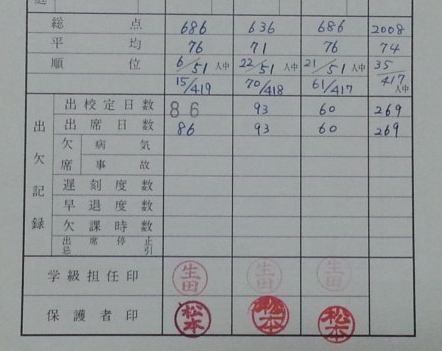 総点 686 636 686 2008
平均 76 71 76 74
順位 6/51人中 22/51人中 21/51人中 35
15/419 70/418 61/417 417人中
出欠記録
出校定日数 86 93 60 269
出席日数 86 93 60 269
欠席 病気
事故
遅刻度数
早退度数
欠課時数
出席停止
忌引
学級担任印 生田 生田 生田
保護者印 松本 松本 松本